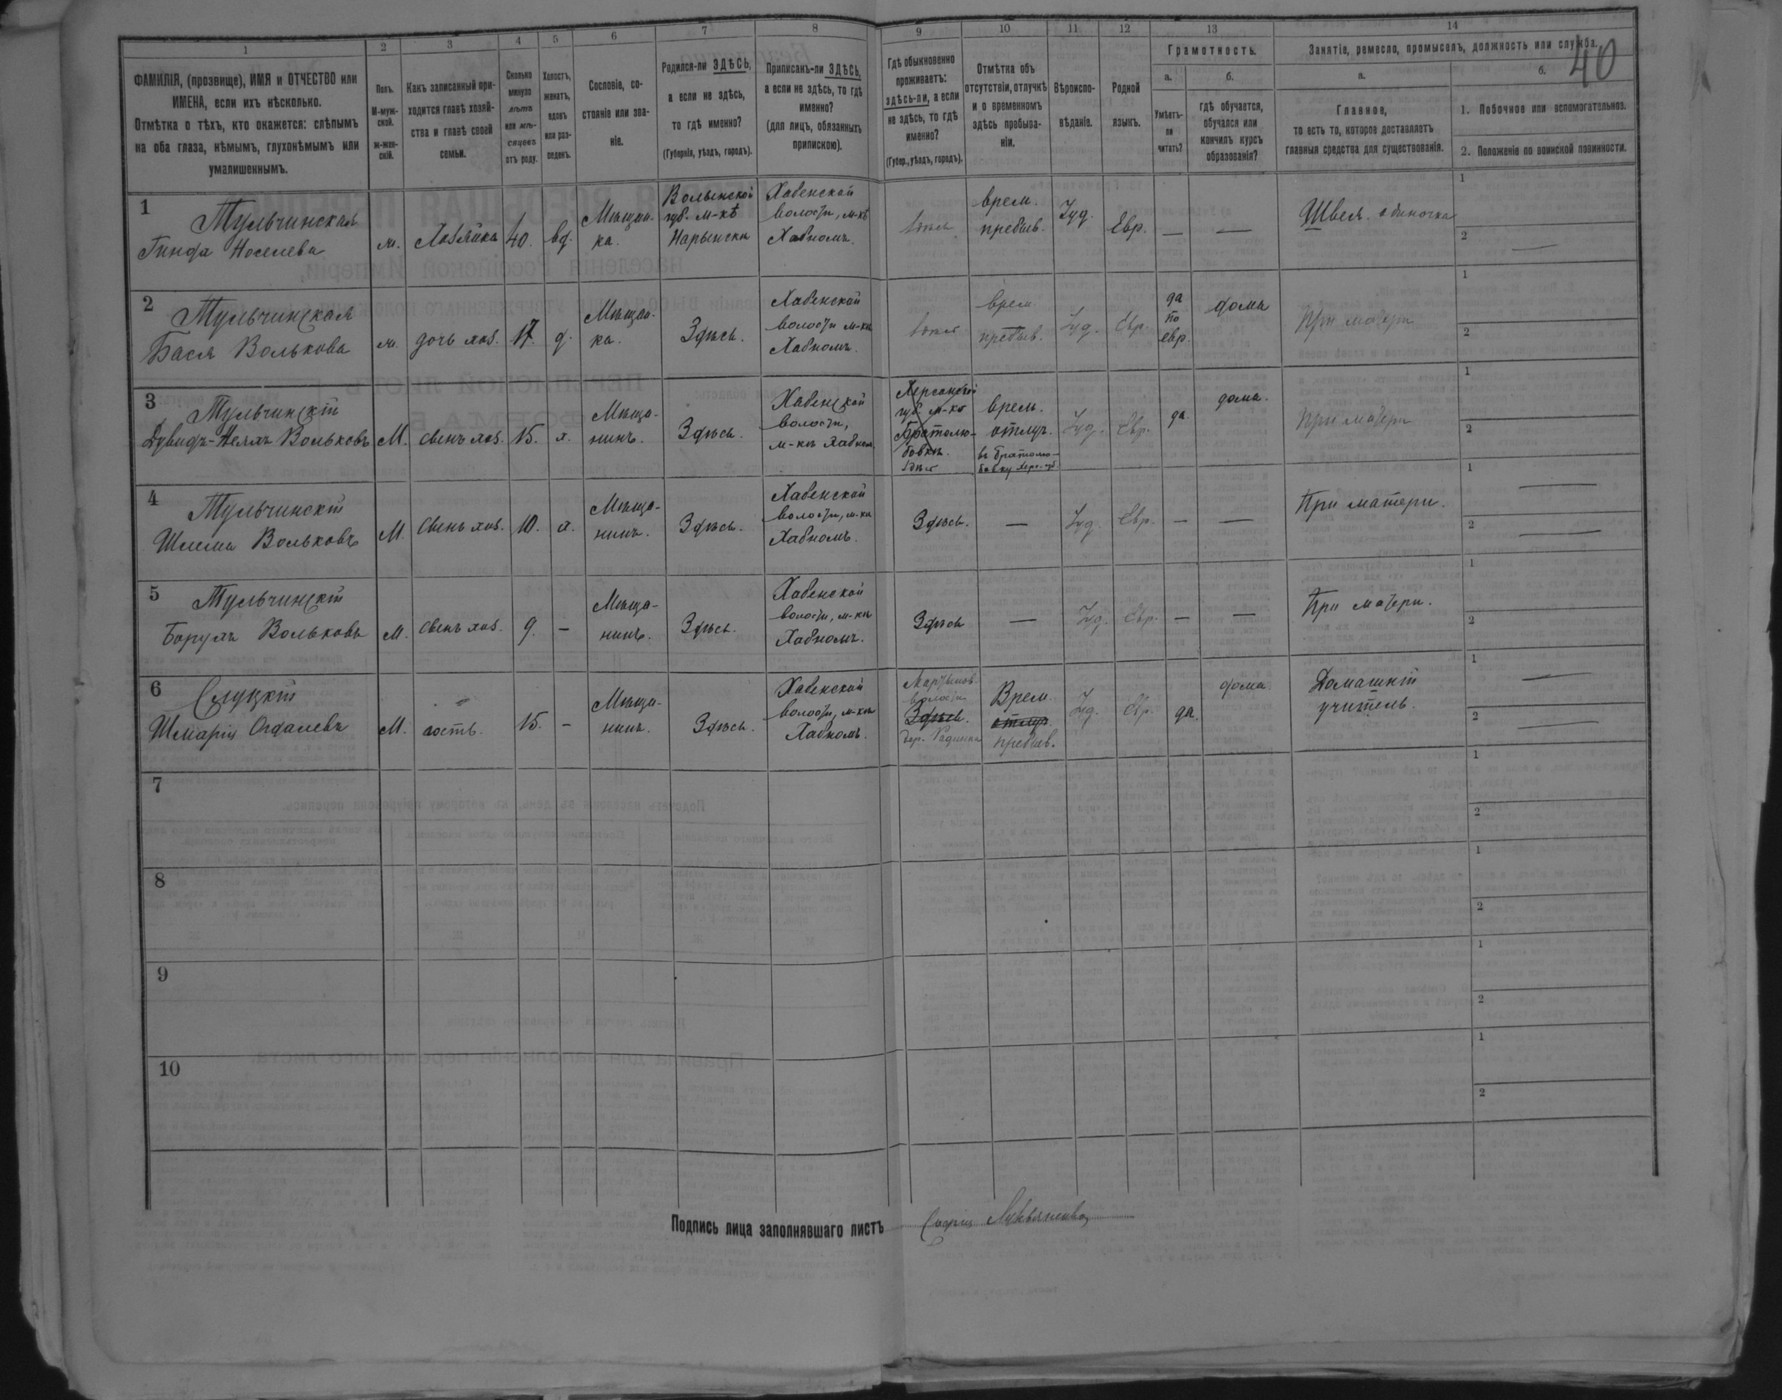 40
1
2
3
4
5
6
7
8
9
10
11
12
13
14
ФАМИЛІЯ, (прозвище), ИМЯ и ОТЧЕСТВО или
ИМЕНА, если ихъ нѣсколько.
Отмѣтка о тѣхъ, кто окажется: слѣпымъ
на оба глаза, нѣмымъ, глухонѣмымъ или
умалишеннымъ.
Полъ.
М-муж-
ской.
ж-жен-
скій.
Какъ записанный при-
ходится главѣ хозяй-
ства и главѣ своей
семьи.
Сколько
минуло
лѣтъ
или мѣ-
сяцевъ
отъ роду.
Холостъ,
женатъ,
вдовъ
или раз-
веденъ.
Сословіе, со-
стояніе или зва-
ніе.
Родился-ли ЗДѢСЬ,
а если не здѣсь,
то гдѣ именно?
(Губернія, уѣздъ, городъ).
Приписанъ-ли ЗДѢСЬ,
а если не здѣсь, то гдѣ
именно?
(для лицъ, обязанныхъ
припискою).
Гдѣ обыкновенно
проживаетъ:
здѣсь-ли, а если
не здѣсь, то гдѣ
именно?
(Губер., уѣздъ, городъ).
Отмѣтка объ
отсутствіи, отлучкѣ
и о временномъ
здѣсь пребыва-
ніи.
Вѣроиспо-
вѣданіе.
Родной
языкъ.
Грамотность.
а.
Умѣетъ-
ли
читать?
б.
гдѣ обучается,
обучался или
кончилъ курсъ
образованія?
Занятіе, ремесло, промыселъ, должность или служба.
а.
Главное,
то есть то, которое доставляетъ
главныя средства для существованія.
б.
1. Побочное или вспомогательное.
2. Положеніе по воинской повинности.
1
Тульчинская
Гинда Иоселева
ж.
Хозяйка
40.
вд.
Мѣщан-
ка.
Волынской
губ. м-кѣ
Нарынски
Хабенской
волости, м-кѣ
Хабномъ.
врем.
пребыв.
Іуд.
Евр.
—
—
Швея одиночка
1
2 —
2
Тульчинская
Бася Волькова
ж.
дочь хоз.
17.
д.
Мѣщан-
ка.
Здѣсь.
Хабенской
волости м-кѣ
Хабномъ.
врем
пребыв.
Іуд.
Евр.
да
по
евр.
дома
При матери
1
2
3
Тульчинскій
Дувидъ-Мехлъ Вольковъ
М.
сынъ хоз.
15.
х.
Мѣща-
нинъ.
Здѣсь.
Хабенской
волости,
м-кѣ Хабном
Херсонской
губ. м-ко
Братолю-
бовкѣ.
врем.
отлуч.
въ братолю-
бовку Херс. губ.
Іуд.
Евр.
да
дома.
При матери
1
2
4
Тульчинскій
Шлема Вольковъ
М.
сынъ хоз.
10.
х.
Мѣща-
нинъ.
Здѣсь.
Хабенской
волости, м-кѣ
Хабномъ.
Здѣсь.
—
Іуд.
Евр.
—
—
При матери.
1 —
2 —
5
Тульчинскій
Борухъ Вольковъ
М.
сынъ хоз.
9.
—
Мѣща-
нинъ.
Здѣсь.
Хабенской
волости, м-кѣ
Хабномъ.
Здѣсь
—
Іуд.
Евр.
—
—
При матери.
1
2
6
Слуцкій
Шмарія
М.
гость.
15.
—
Мѣща-
нинъ.
Здѣсь.
Хабенской
волости, м-кѣ
Хабномъ.
волости
Здѣсь.
дер.
Врем
отлуч
пребыв.
Іуд.
Евр.
да.
дома
Домашній
учитель.
1 —
2 —
7
1
2
8
1
2
9
1
2
10
1
2
Подпись лица заполнявшаго листъ